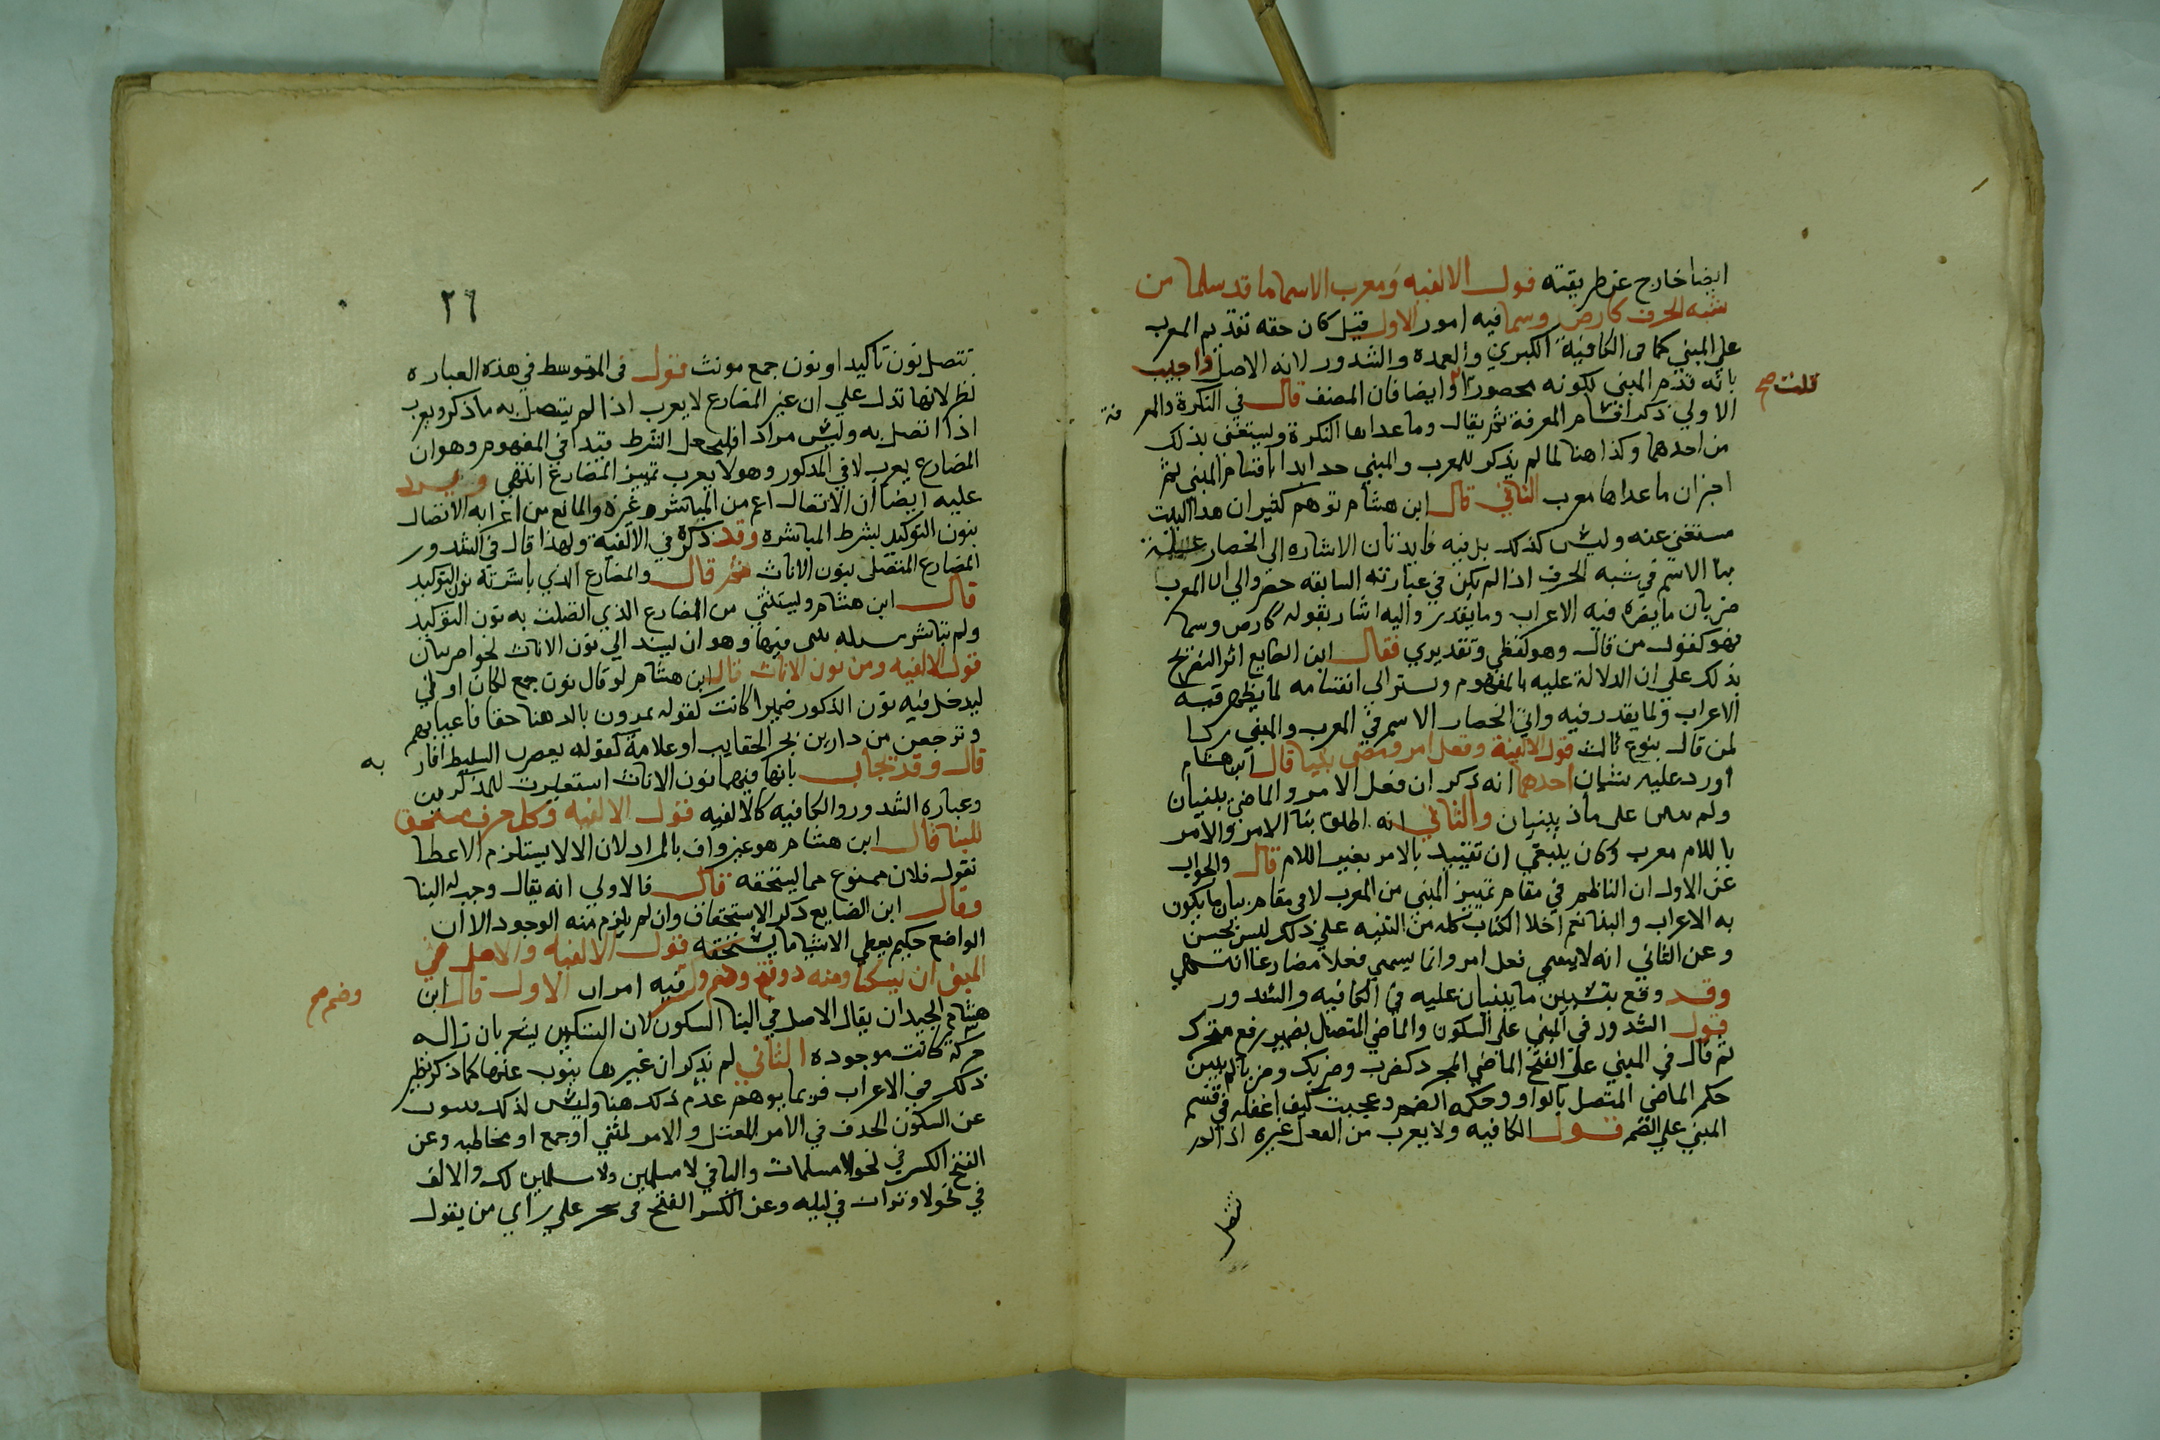 ايضا خارج عن طريقته قول الالفيه ومعرب الاسما ما قد سلما من
شبه الحرف كارض وسما فيه امور الاول قيل كان حقه تقديم المعرب
على المبني كما في الكافية الكبري والعمده والشذور لانه الاصل واجيب
بانه قدم المبني لكونه محصورا وايضا فان المصنف قال في النكرة والمعر فة
قلت صح
الاولي ذكر اقسام المعرفة ثم يقال وما عداها النكرة وليستغني بذلك
من احدهما وكذا هنا لما لم يذكر للمعرب والمبني حدا بدا باقسام المبني ثم
اخبر ان ما عداها معرب الثاني قال ابن هشام توهم كثير ان هذا البيت
مستغني عنه وليس كذلك بل فيه فايدتان الاشاره الى انحصار علة
بنا الاسم في شبه الحرف اذا لم يكن في عبارته السابقه حصر والي ان المعرب
ضربان ما يظهر فيه الاعراب وما يقدر واليه اشار بقوله كارض وسما
فهو كقول من قال وهو لفظي وتقديري فقال ابن الضايع اثر التفريج
بذلك على ان الدلالة عليه بالمفهوم وستر الى انقسامه لما يظهر فيه
الاعراب ولما يقدر فيه والى انحصار الاسم في المعرب والمبني ردا
لمن قال بنوع ثالث قول الالفية وفعل امر ومضى بنيا قال ابن هشام
اورد عليه شيان احدهما انه ذكر ان فعل الامر والماضي يبنيان
ولم ينص على ماذا يبنيان والثاني انه اطلق بنا الامر والامر
باللام معرب وكان ينبغي ان تقييد بالامر بغير اللام قال والجواب
عن الاول ان الناظم في مقام تمييز المبني من المعرب لا في مقام بيان ما يكون
به الاعراب والبنا نعم اخلا الكتاب كله من التنبيه على ذلك ليس بحسن
وعن الثاني انه لا يسمى فعل امر وانما يسمي فعلا مضارعا انتهي
وقد وقع بتبيين ما يبنيان عليه في الكافيه والشذور
قول الشذور في المبني على السكون والماضي المتصل بضمير رفع متحرك
ثم قال في المبني على الفتح الماضي المجرد كضرب وضربك وضربا لم يبين
حكم الماضي المتصل بالواو وحكمه الضم وعجبت كيف اغفله في قسم
المبني على الضم قول الكافيه ولا يعرب من الفعل غيره اذا لم
تتصل
٢٦
تتصل نون تاكيد او نون جمع مونث قول في المتوسط في هذه العباره
نظر لانها تدل على ان غير المضارع لا يعرب اذا لم يتصل به ما ذكر ويعرب
اذا اتصل به وليس مراد افليجعل الشرط قيدا في المفهوم وهو ان
المضارع يعرب لا في المذكور وهو لا يعرب تمييز المضارع انتهي ويرد
عليه ايضا ان الاتصال اعم من المباشره وغيره والمانع من اعرابه الاتصال
بنون التوكيد بشرط المباشره وقد ذكره في الالفية ولهذا قال في الشذور
المضارع المتصل بنون الاناث ثم قال والمضارع الذي باشرته نون التوكيد
قال ابن هشام وليستثني من المضارع الذي اتصلت به نون التوكيد
ولم تباشر وهو ان يسند الي نون الاناث نحو اضربنان
قول الالفيه ومن نون الاناث قال ابن هشام لو قال نون جمع لكان اولى
ليدخل فيه نون الذكور ضميرا كانت كقوله يمرون بالدهنا خفافا عيابهم
وترجعن من دارين بجر الحقايب او علامة كقوله يعصرن السليط اقار به
قال وقد يجاب بانها فيهما نون الاناث استعيرت للمذكرين
وعباره الشذور والكافيه كالالفيه قول الالفيه وكل حرف مستحق
للبنا قال ابن هشام هو غير واف بالمراد لان الا لا يستلزم الاعطا
تقول فلان ممنوع مما يستحقه قال فالاولي انه يقال وجب له البنا
وقال ابن الضايع ذكر الاستحقاق وان لم يلزم منه الوجود الا ان
الواضع حكيم يعطي الاشيا ما يستحقه قول الالفيه والاصل في
المبني ان يسكنا ومنه ذو فتح وذو كسر وضم صح فيه امران الاول قال ابن
هشام الجيد ان يقال الاصل في البنا السكون لان التسكين يشعر بان ازاله
حركة كانت موجوده الثاني لم يذكر ان غيرها ينوب عنها كما ذكر نظير
ذلك في الاعراب فربما يوهم عدم ذلك هنا وليس كذلك فينوب
عن السكون الحذف في الامر المعتل والامر لمثني او جمع او مخاطبه وعن
الفتح الكسر في نحو لا مسلمات واليا في لا مسلمين ولا مسلمين لك والالف
في نحو لا وتران في ليله وعن الكسر الفتح في سحر علي راي من يقول